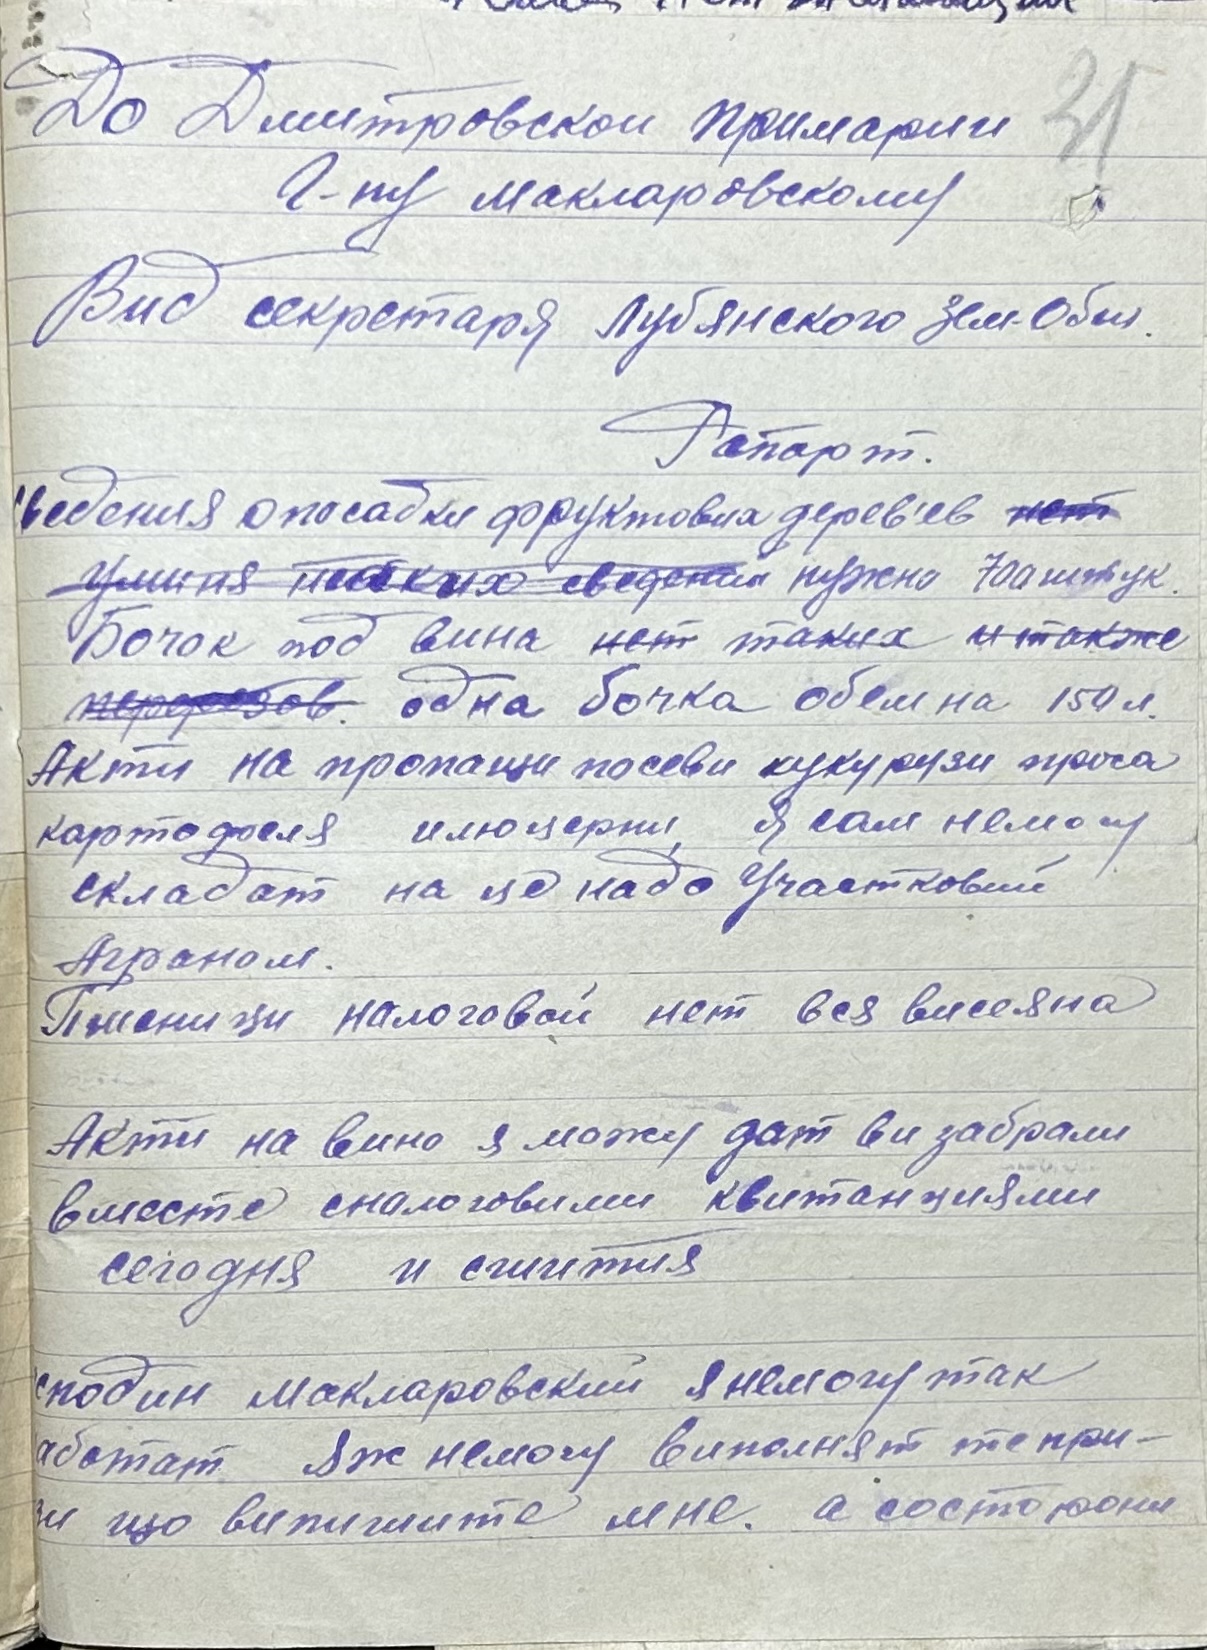 31
До Дмитровскои примарии
Г-ну Макларовскому
Вид секретаря Лубянского Зем-Общ.
Рапарт.
Сведения о посадки фруктових дерев'ев нет
У миня неяких сведений нужно 700 штук.
Бочок под вина нет таких и также
перерезов. одна бочка обем на 150 л.
Акти на пропащи посеви кукурузи проса
картофеля и люцерни, я сам немогу
складат на це надо Участковий
Аграном.
Пшеници налоговой нет вся висеяна
Акти на вино я можу дат ви забрали
вместе сналоговими квитанциями
сегодня и считтия
сподин Макларовский я немогу так
аботат яж немогу виполнят те при-
зи що випишите мне. а состорони